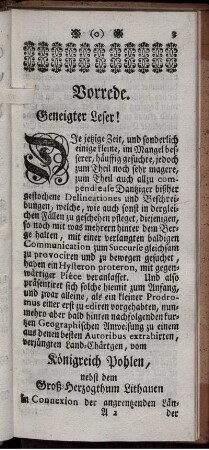 (o) 3
Vorrede.
Geneigter Leser!
Die jetzige Zeit, und sonderlich
einige kleine, im Mangel bes-
serer, häuffig gesuchte, jedoch
zum Theil noch sehr magere,
zum Theil auch allzu com-
pendieuse Dantziger bißher
gestochene Delineationes und Beschrei-
bungen, welche, wie auch sonst in derglei-
chen Fällen zu geschehen pfleget, diejenigen,
so noch mit was mehrern hinter dem Ber-
ge halten, mit einer verlangten baldigen
Communication zum Succurse gleichsam
zu provociren und zu bewegen gesuchet,
haben ein Hysteron proteron, mit gegen-
wärtiger Piéce veranlasset. Und also
präsentiret sich solche hiemit zum Anfang,
und zwar alleine, als ein kleiner Prodro-
mus einer erst zu ediren vorgehabten, nun-
mehro aber bald hinten nachfolgenden kur-
tzen Geographischen Anweisung zu einem
aus denen besten Autoribus extrahirten,
verjüngten Land-Chärtgen, vom
Königreich Pohlen,
nebst dem
Groß-Herzogthum Lithauen
in Connexion der angrentzenden Län-
A 2 der